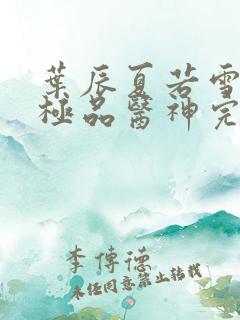 葉辰夏若雪
極品醫神完
李傳德
未經同意禁止轉載